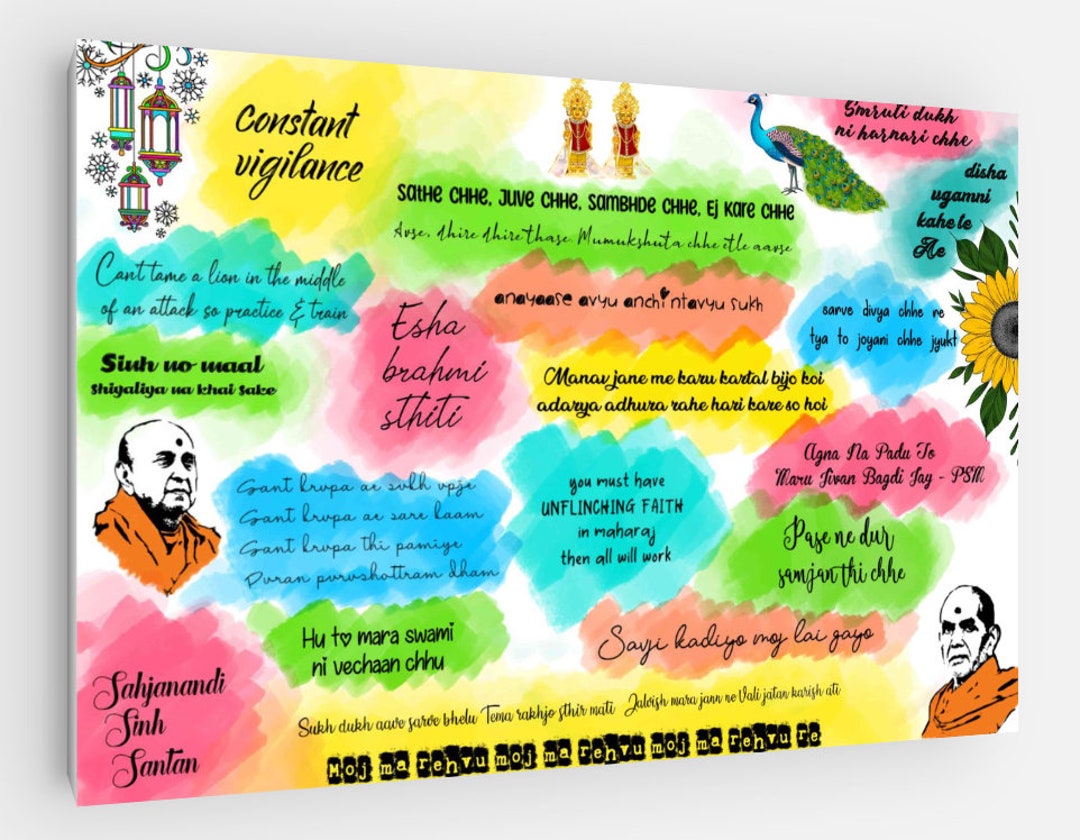 Constant
vigilance
Sathe chhe, Juve chhe, Sambhde chhe, Ej Kare chhe
Avse, dhire dhire thase. Mumukshuta chhe etle aavse
Smruti dukh
ni harnari chhe
disha
ugamni
kahe te
Ae
Cant tame a lion in the middle
of an attack so practice & train
Esha
brahmi
sthiti
anayaase avyu anchintavyu sukh
sarve divya chhe ne
tya to joyani chhe jyukt
Sinh no maal
shiyaliya na khai sake
Manav jane me karu kartal bijo koi
adarya adhura rahe hari kare so hoi
Agna Na Padu To
Maru Jivan Bagdi Jay - PSM
Sant krupa ae sukh upje
Sant krupa ae sare kaam
Sant krupa thi pamiye
Puran purushottram dham
you must have
UNFLINCHING FAITH
in maharaj
then all will work
Pase ne dur
samjan thi chhe
Hu to mara swami
ni vechaan chhu
Sayji kadiyo moj lai gayo
Sahjanandi
Sinh
Santan
Sukh dukh aave sarve bhelu Tema rakhjo sthir mati Jalvish mara jann ne Vali jatan karish ati
Moj ma rehvu moj ma rehvu moj ma rehvu re